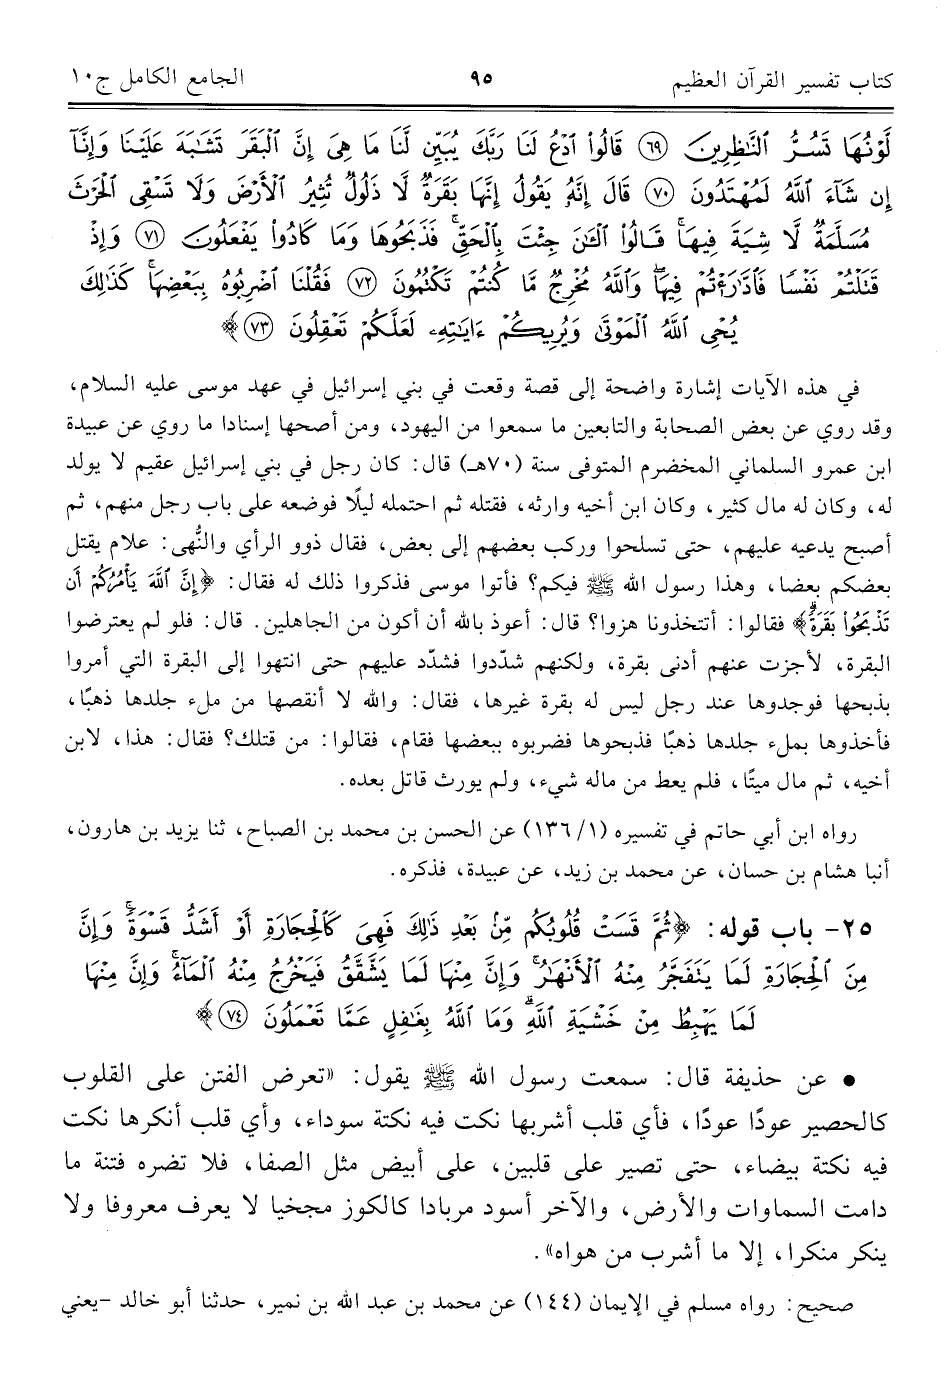 كتاب تفسير القرآن العظيم ٩٥ الجامع الكامل ج١٠
لَّوْنُهَا تَسُرُّ ٱلنَّٰظِرِينَ ﴿٦٩﴾ قَالُوا۟ ٱدْعُ لَنَا رَبَّكَ يُبَيِّن لَّنَا مَا هِىَ إِنَّ ٱلْبَقَرَ تَشَٰبَهَ عَلَيْنَا وَإِنَّآ
إِن شَآءَ ٱللَّهُ لَمُهْتَدُونَ ﴿٧٠﴾ قَالَ إِنَّهُۥ يَقُولُ إِنَّهَا بَقَرَةٌ لَّا ذَلُولٌ تُثِيرُ ٱلْأَرْضَ وَلَا تَسْقِى ٱلْحَرْثَ
مُسَلَّمَةٌ لَّا شِيَةَ فِيهَا ۚ قَالُوا۟ ٱلْـَٰٔنَ جِئْتَ بِٱلْحَقِّ ۚ فَذَبَحُوهَا وَمَا كَادُوا۟ يَفْعَلُونَ ﴿٧١﴾ وَإِذْ
قَتَلْتُمْ نَفْسًا فَٱدَّٰرَْٰٔتُمْ فِيهَا ۖ وَٱللَّهُ مُخْرِجٌ مَّا كُنتُمْ تَكْتُمُونَ ﴿٧٢﴾ فَقُلْنَا ٱضْرِبُوهُ بِبَعْضِهَا ۚ كَذَٰلِكَ
يُحْىِ ٱللَّهُ ٱلْمَوْتَىٰ وَيُرِيكُمْ ءَايَٰتِهِۦ لَعَلَّكُمْ تَعْقِلُونَ ﴿٧٣﴾ ﴾
في هذه الآيات إشارة واضحة إلى قصة وقعت في بني إسرائيل في عهد موسى عليه السلام،
وقد روي عن بعض الصحابة والتابعين ما سمعوا من اليهود، ومن أصحها إسنادا ما روي عن عبيدة
ابن عمرو السلماني المخضرم المتوفى سنة (٧٠هـ) قال: كان رجل في بني إسرائيل عقيم لا يولد
له، وكان له مال كثير، وكان ابن أخيه وارثه، فقتله ثم احتمله ليلًا فوضعه على باب رجل منهم، ثم
أصبح يدعيه عليهم، حتى تسلحوا وركب بعضهم إلى بعض، فقال ذوو الرأي والنُّهى: علام يقتل
بعضكم بعضا، وهذا رسول الله ﷺ فيكم؟ فأتوا موسى فذكروا ذلك له فقال: ﴿إِنَّ ٱللَّهَ يَأْمُرُكُمْ أَن
تَذْبَحُوا۟ بَقَرَةً ۖ﴾ فقالوا: أتتخذونا هزوا؟ قال: أعوذ بالله أن أكون من الجاهلين. قال: فلو لم يعترضوا
البقرة، لأجزت عنهم أدنى بقرة، ولكنهم شدّدوا فشدّد عليهم حتى انتهوا إلى البقرة التي أمروا
بذبحها فوجدوها عند رجل ليس له بقرة غيرها، فقال: والله لا أنقصها من ملء جلدها ذهبًا،
فأخذوها بملء جلدها ذهبًا فذبحوها فضربوه ببعضها فقام، فقالوا: من قتلك؟ فقال: هذا، لابن
أخيه، ثم مال ميتًا، فلم يعط من ماله شيء، ولم يورث قاتل بعده.
رواه ابن أبي حاتم في تفسيره (١/ ١٣٦) عن الحسن بن محمد بن الصباح، ثنا يزيد بن هارون،
أنبا هشام بن حسان، عن محمد بن زيد، عن عبيدة، فذكره.
٢٥- باب قوله: ﴿ثُمَّ قَسَتْ قُلُوبُكُم مِّنۢ بَعْدِ ذَٰلِكَ فَهِىَ كَٱلْحِجَارَةِ أَوْ أَشَدُّ قَسْوَةً ۚ وَإِنَّ
مِنَ ٱلْحِجَارَةِ لَمَا يَتَفَجَّرُ مِنْهُ ٱلْأَنْهَٰرُ ۚ وَإِنَّ مِنْهَا لَمَا يَشَّقَّقُ فَيَخْرُجُ مِنْهُ ٱلْمَآءُ ۚ وَإِنَّ مِنْهَا
لَمَا يَهْبِطُ مِنْ خَشْيَةِ ٱللَّهِ ۗ وَمَا ٱللَّهُ بِغَٰفِلٍ عَمَّا تَعْمَلُونَ ﴿٧٤﴾ ﴾
• عن حذيفة قال: سمعت رسول الله ﷺ يقول: «تعرض الفتن على القلوب
كالحصير عودًا عودًا، فأي قلب أشربها نكت فيه نكتة سوداء، وأي قلب أنكرها نكت
فيه نكتة بيضاء، حتى تصير على قلبين، على أبيض مثل الصفا، فلا تضره فتنة ما
دامت السماوات والأرض، والآخر أسود مربادا كالكوز مجخيا لا يعرف معروفا ولا
ينكر منكرا، إلا ما أشرب من هواه».
صحيح: رواه مسلم في الإيمان (١٤٤) عن محمد بن عبد الله بن نمير، حدثنا أبو خالد -يعني